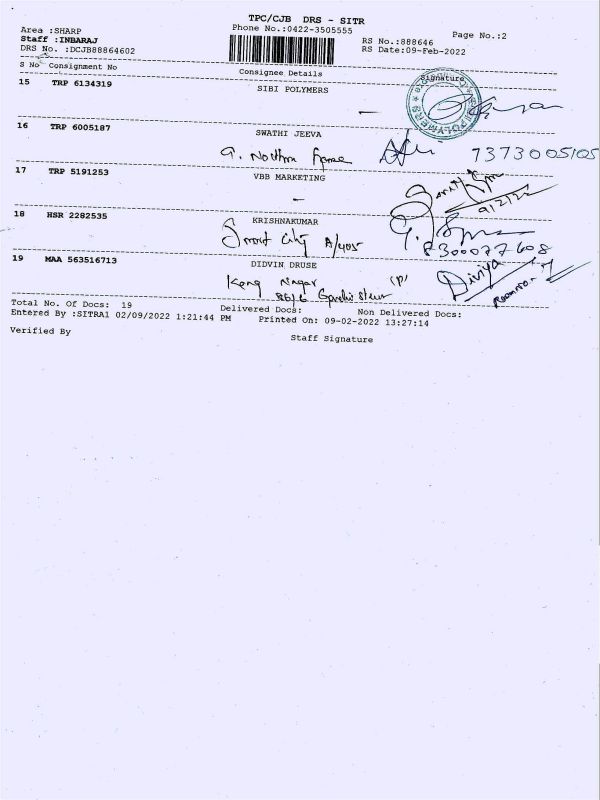 TPC/CJB DRS - SITR
Area :SHARP
Phone No.:0422-3505555
Page No.:2
Staff :INBARAJ
RS No.:888646
DRS No. :DCJB88864602
RS Date:09-Feb-2022
S No Consignment No
Consignee Details
Signature
15 TRP 6134319
SIBI POLYMERS
16 TRP 6005187
SWATHI JEEVA
7373005105
17 TRP 5191253
VBB MARKETING
9/2/22
18 HSR 2282535
KRISHNAKUMAR
Smart City A/405
8300077608
19 MAA 563516713
DIDVIN DRUSE
Nagar
Diviya
Total No. Of Docs: 19
Delivered Docs:
Non Delivered Docs:
Entered By :SITRA1 02/09/2022 1:21:44 PM
Printed On: 09-02-2022 13:27:14
Verified By
Staff Signature